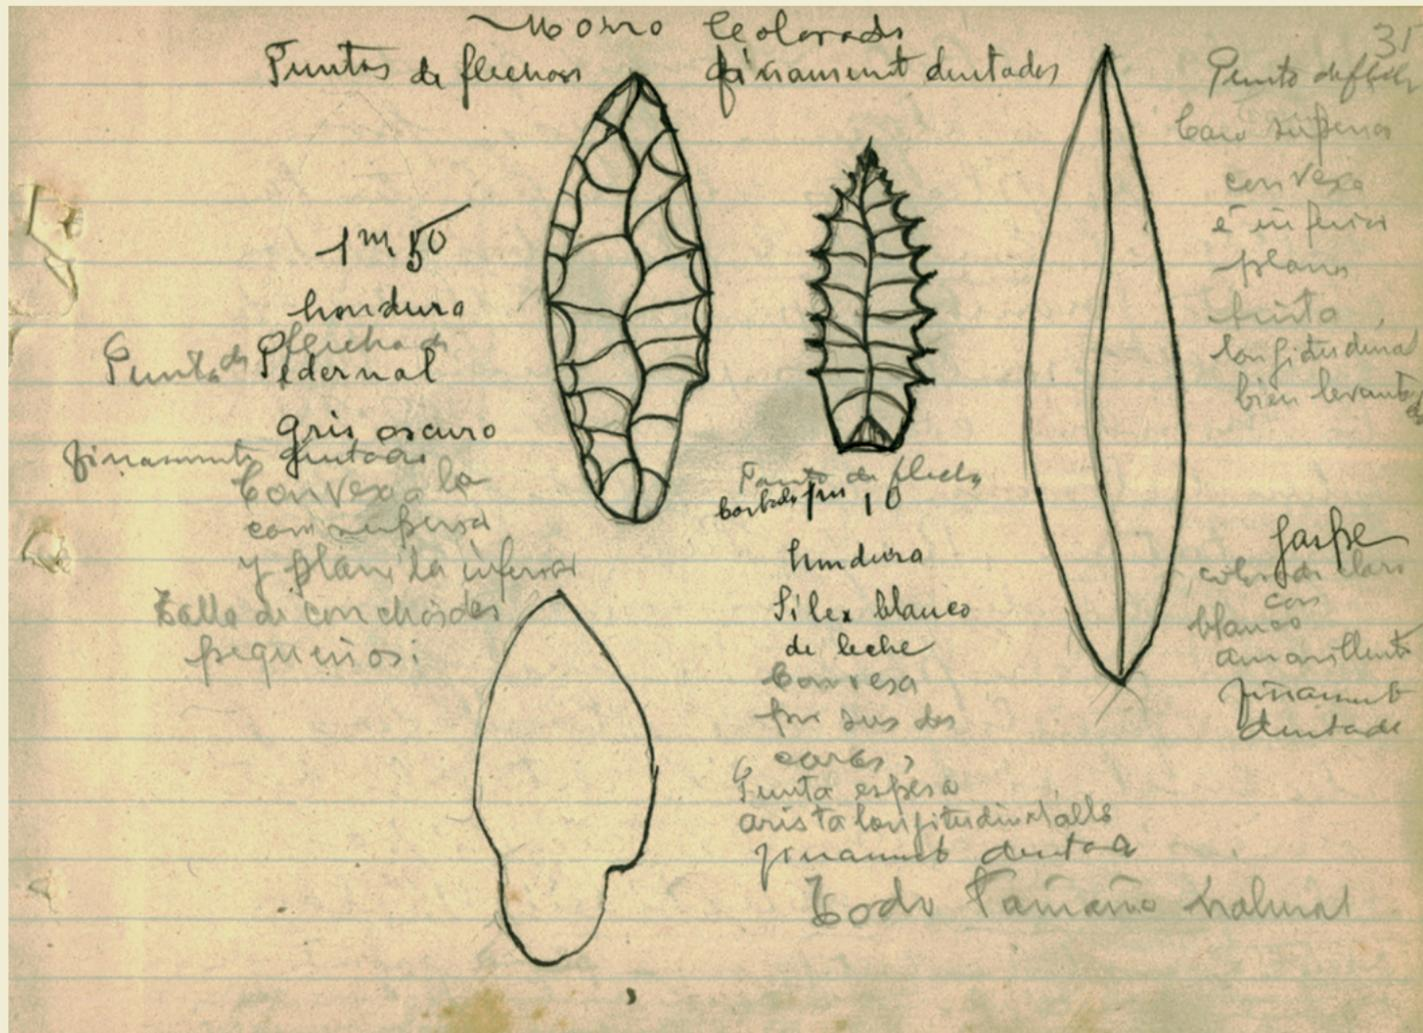 Morro Colorado
31
Puntas de flechas finament dentadas
1 m 50
hondura
Punta de flecha de
Pedernal
gris oscuro
finamente dentada
Convexa la
cara superior
y plana la inferior
Talla de conchoides
pequeños:
Punta de flecha
1 m 10
hondura
Silex blanco
de leche
Convexa
por sus dos
caras,
Punta espesa
arista longitudinal alta
finament dentada
Punta de flecha
Cara superior
convexa
é inferior
plana
arista
longitudinal
bien levantada
Jaspe
colorado claro
con
blanco
amarillento
finament
dentada
Todo Tamaño natural